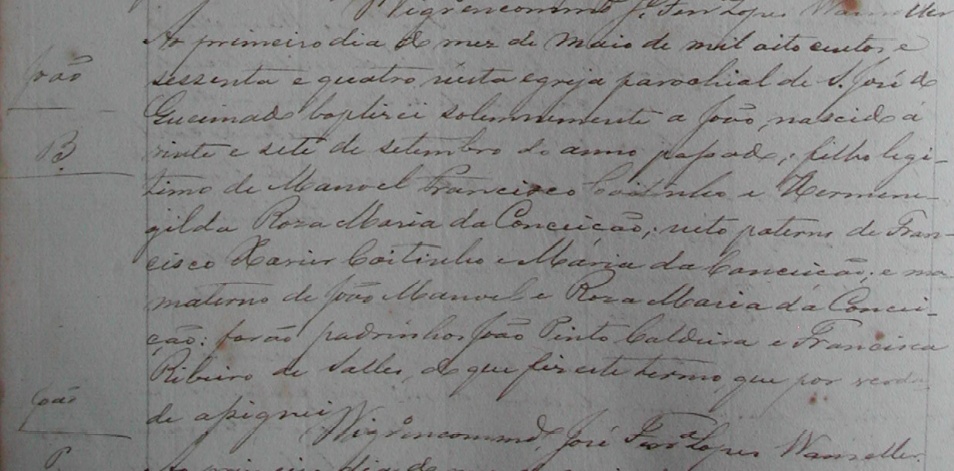 Vigr.encommdo Je. Ferr Lopes Wanzeller
Ao primeiro dia do mez de maio de mil oito centos e
João
sessenta e quatro nesta egreja parochial de S. José de
Queimado baptizei solemnemente a João, nascido á
B.
vinte e sete de setembro do anno passado; filho legi-
timo de Manoel Francisco Coitinho e Hermene-
gilda Roza Maria da Conceição; neto paterno de Fran-
cisco Xavier Coitinho e Mária da Conceição; e
materno de João Manoel e Roza Maria da Concei-
ção: forão padrinhos João Pinto Caldeira e Francisca
Ribeiro de Salles, do que fiz este termo que por verda-
João
de assignei
Vigr.encommdo José Ferra Lopes Wanzeller.
Ao primeiro dia do